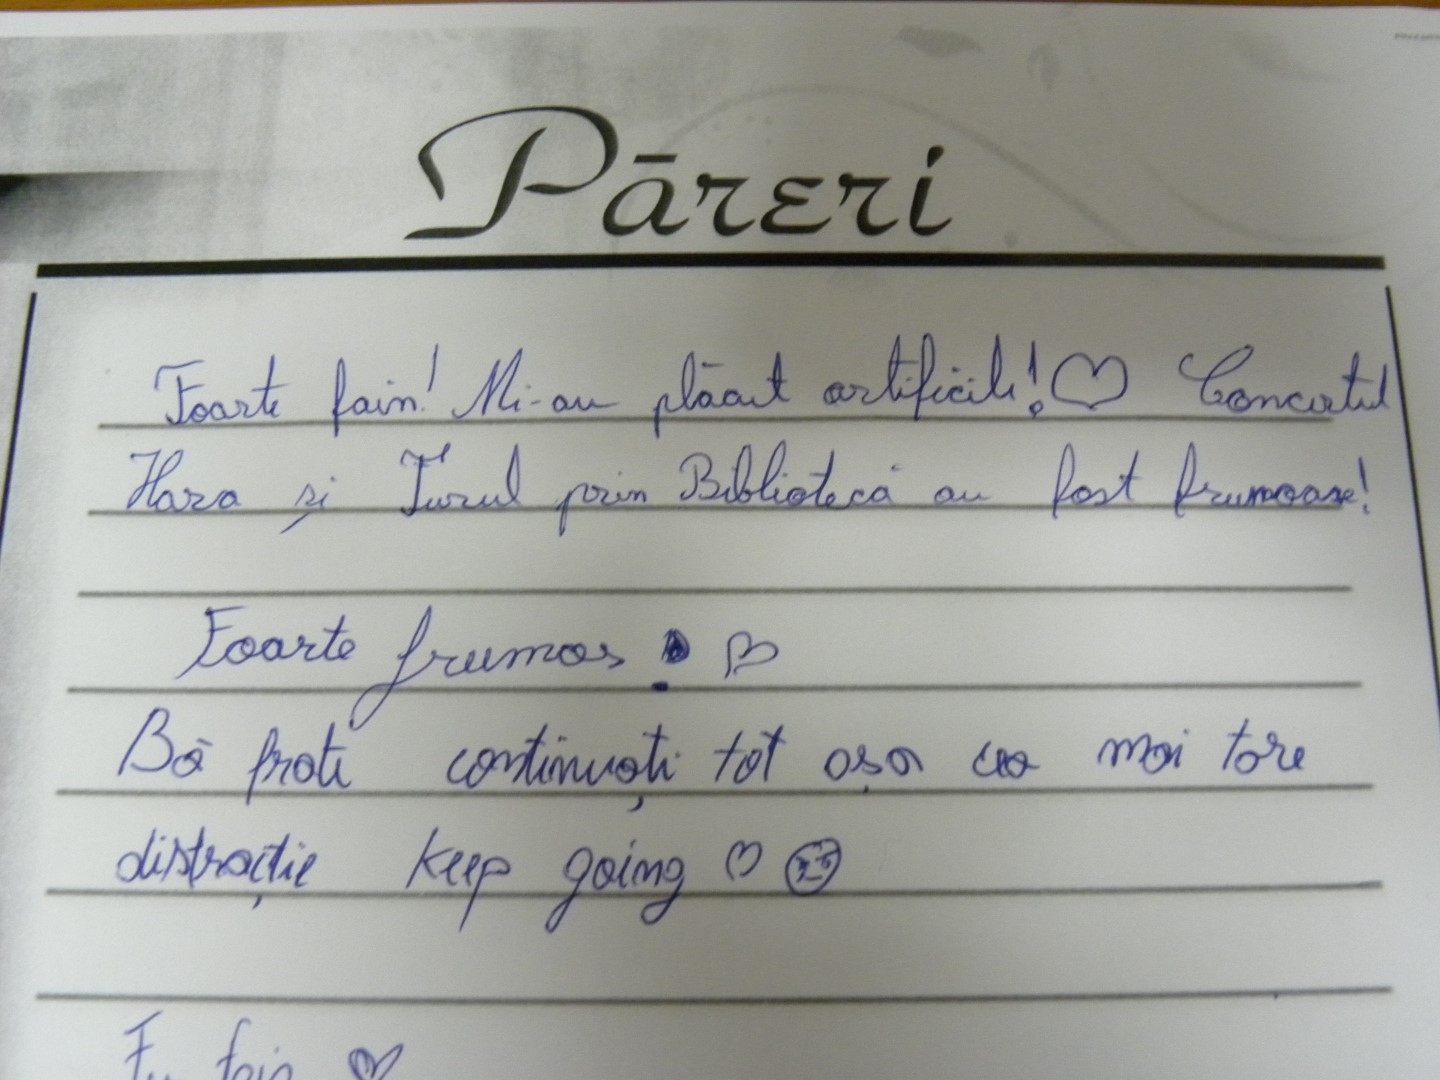 Păreri
Foarte fain! Mi-au plăcut artificile! ♡ Concertul
Hara și Turul prin Bibliotecă au fost frumoase!
Foarte frumos! ♡
Bă frati continuați tot așa cea mai tare
distracție keep going ♡ ☺
fain ♡